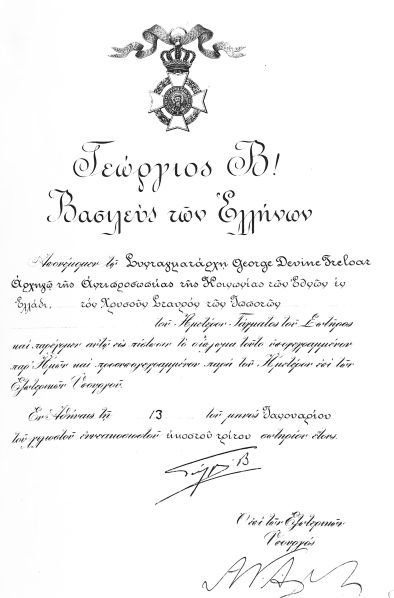 Γεώργιος Β!
Βασιλεὺς τῶν Ἑλλήνων
Ἀπονέμομεν τῷ Συνταγματάρχῃ George Devine Treloar
Ἀρχηγῷ τῆς Ἀντιπροσωπίας τῆς Κοινωνίας τῶν Ἐθνῶν ἐν
Ἑλλάδι, τὸν Χρυσοῦν Σταυρὸν τῶν Ἱπποτῶν
τοῦ Ἡμετέρου Τάγματος τοῦ Σωτῆρος
καὶ παρέχομεν αὐτῷ εἰς πίστωσιν τὸ δίπλωμα τοῦτο ὑπογεγραμμένον
παρ' Ἡμῶν καὶ προσυπογεγραμμένον παρὰ τοῦ Ἡμετέρου ἐπὶ τῶν
Ἐξωτερικῶν Ὑπουργοῦ.
Ἐν Ἀθήναις τῇ 13 τοῦ μηνὸς Ἰανουαρίου
τοῦ χιλιοστοῦ ἐννεακοσιοστοῦ εἰκοστοῦ τρίτου σωτηρίου ἔτους.
Γεώργιος Β
Ὁ ἐπὶ τῶν Ἐξωτερικῶν
Ὑπουργός